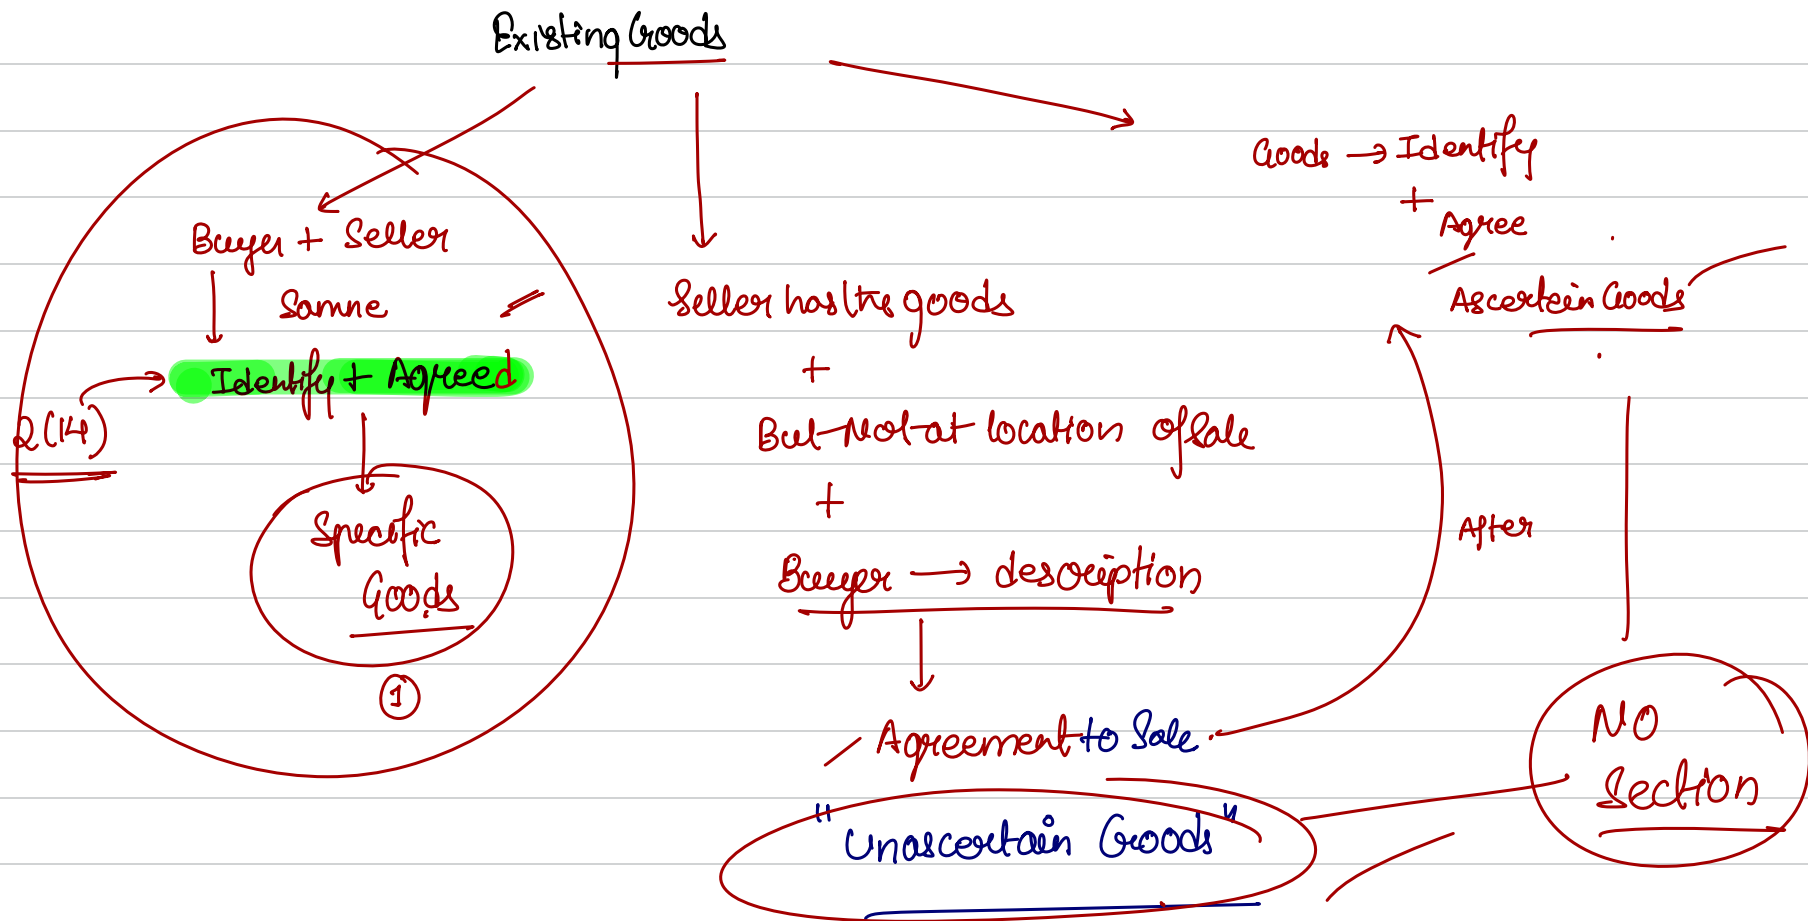 Existing Goods
Buyer + Seller
Samne
Identify + Agreed
2(14)
Specific
Goods
1
Seller has the goods
+
But Not at location of Sale
+
Buyer → description
Agreement to Sale
"Unascertain Goods"
Goods → Identify
+
Agree
Ascertain Goods
After
NO
Section